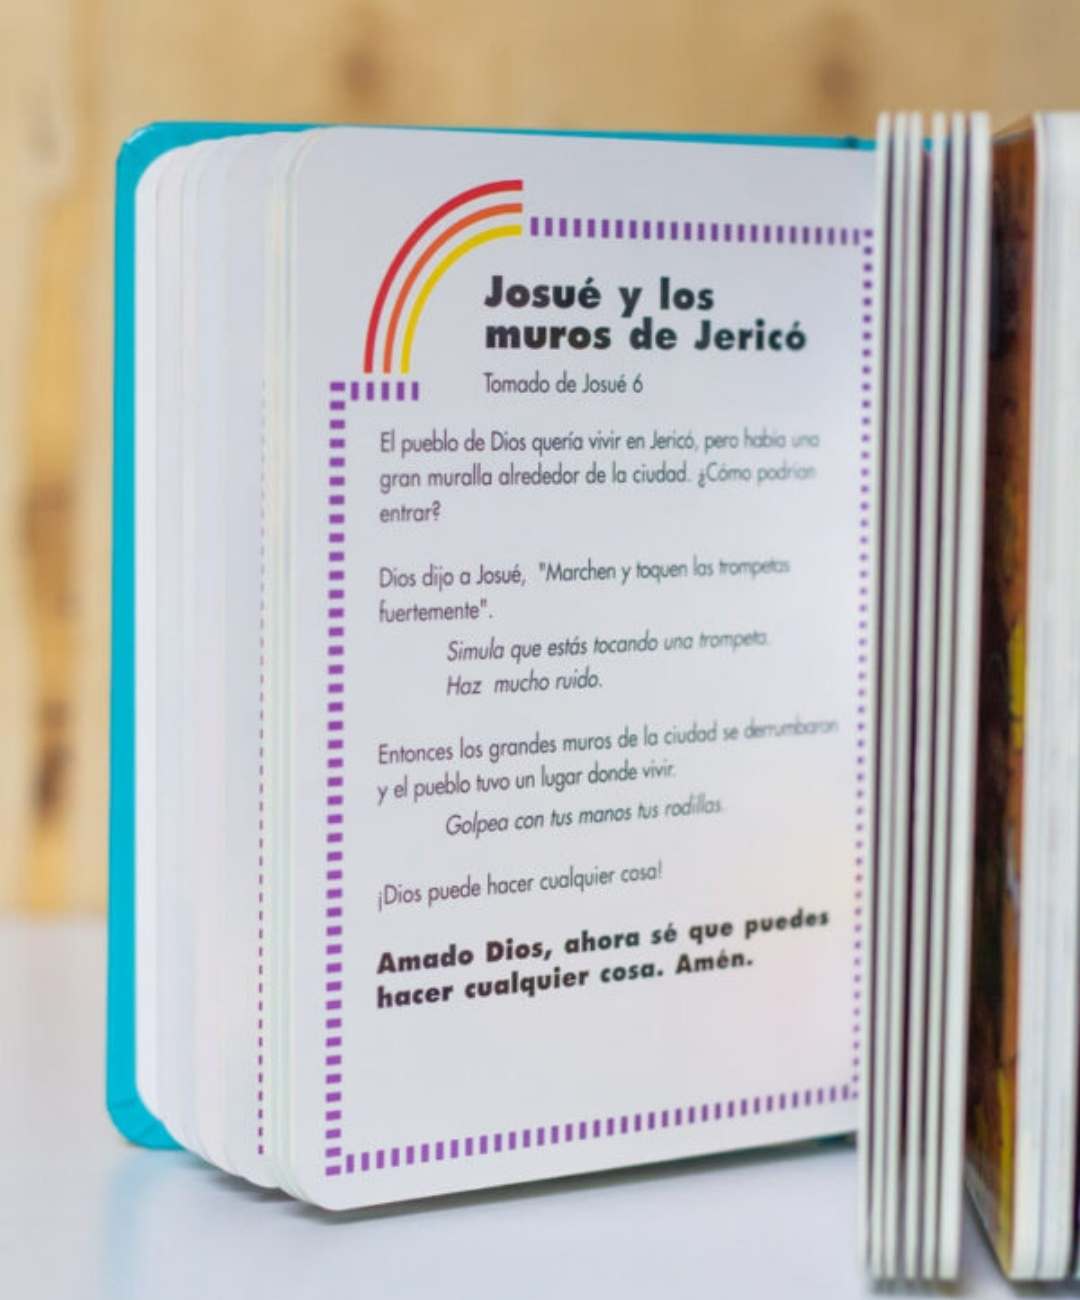 Josué y los
muros de Jericó
Tomado de Josué 6
El pueblo de Dios quería vivir en Jericó, pero había una
gran muralla alrededor de la ciudad. ¿Cómo podrían
entrar?
Dios dijo a Josué, "Marchen y toquen las trompetas
fuertemente".
Simula que estás tocando una trompeta.
Haz mucho ruido.
Entonces los grandes muros de la ciudad se derrumbaron
y el pueblo tuvo un lugar donde vivir.
Golpea con tus manos tus rodillas.
¡Dios puede hacer cualquier cosa!
Amado Dios, ahora sé que puedes
hacer cualquier cosa. Amén.